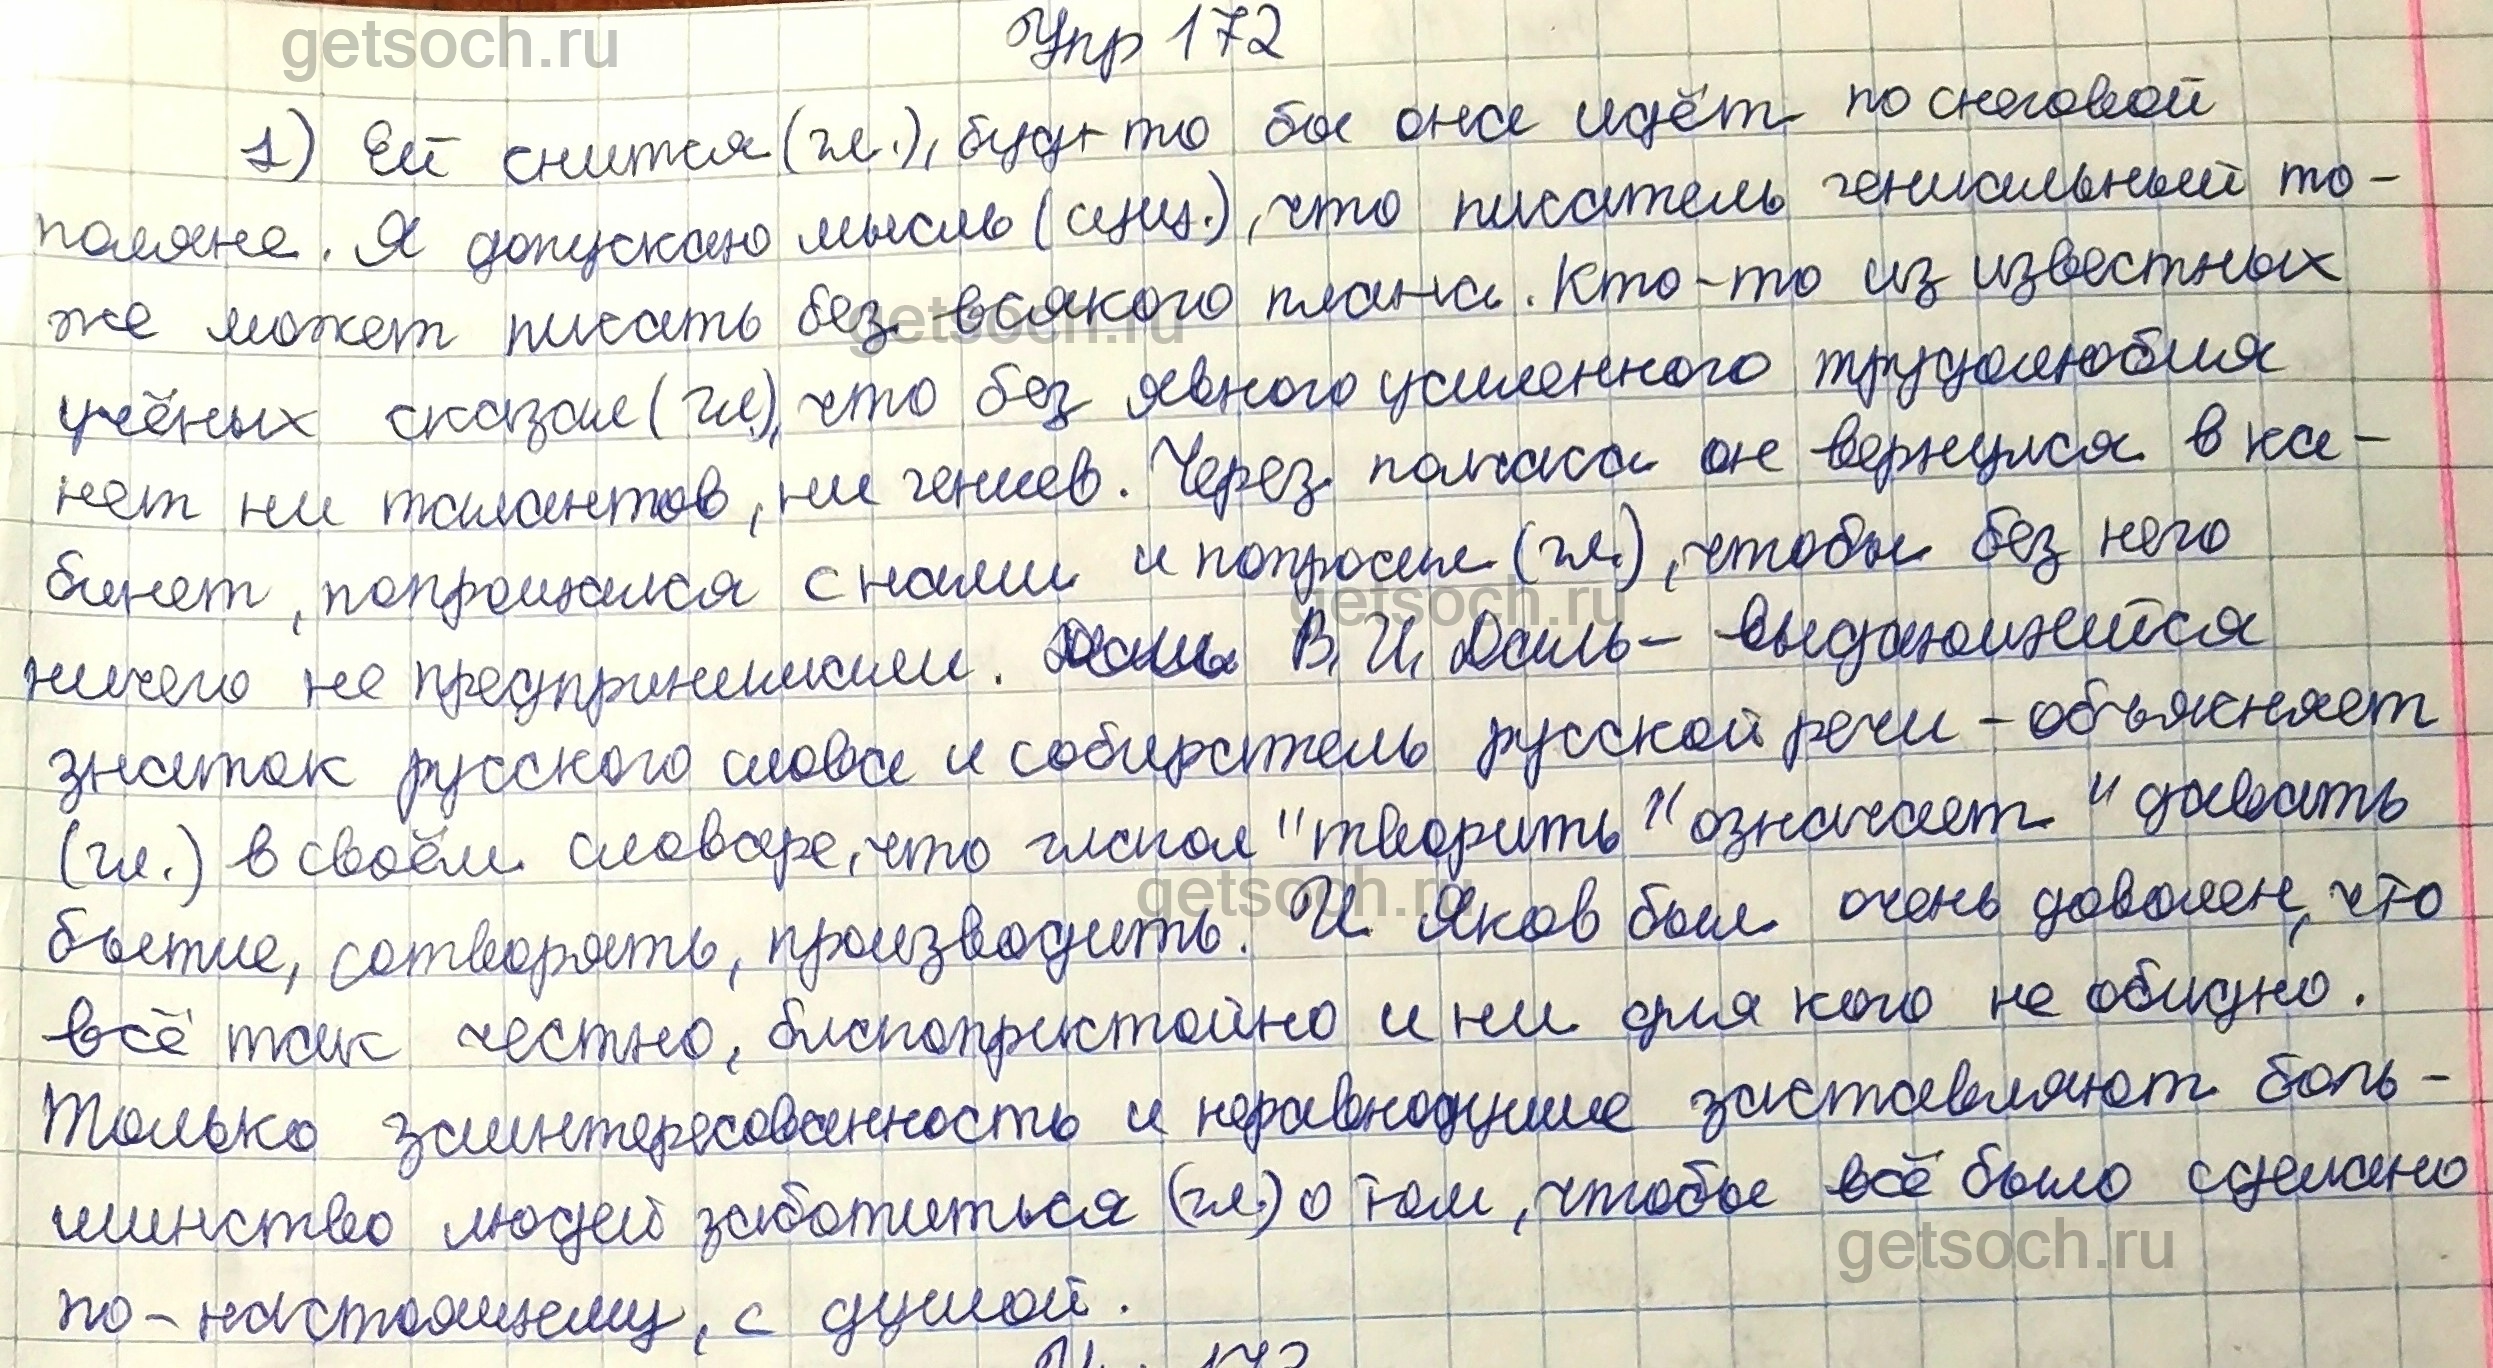 getsoch.ru
Упр 172
1) Ей снится (гл.), будто бы она идёт по снеговой
поляне. Я допускаю мысль (сущ.), что писатель гениальный то-
же может писать без всякого плана. Кто-то из известных
getsoch.ru
учёных сказал (гл.), что без явного усиленного трудолюбия
нет ни талантов, ни гениев. Через полчаса он вернулся в ка-
бинет, попрощался с нами и попросил (гл.), чтобы без него
getsoch.ru
ничего не предпринимали. В. И. Даль – выдающийся
знаток русского слова и собиратель русской речи – объясняет
(гл.) в своём словаре, что глагол "творить" означает "давать
getsoch.ru
бытие, сотворять, производить. И Яков был очень доволен, что
всё так честно, благопристойно и ни для кого не обидно.
Только заинтересованность и неравнодушие заставляют боль-
шинство людей заботиться (гл.) о том, чтобы всё было сделано
getsoch.ru
по-настоящему, с душой.